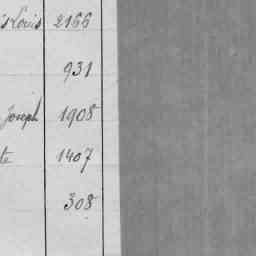 is Louis 2166
931
Joseph 1908
te 1407
308